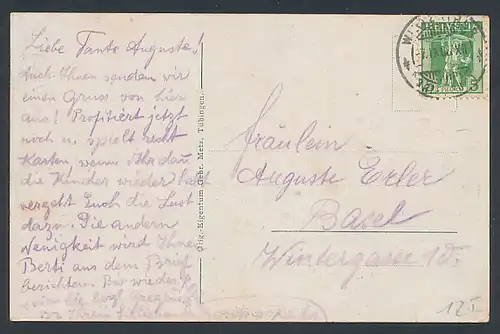 Liebe Tante Auguste!
Auch Ihnen senden wir
einen Gruss von hier
aus! Profitiert jetzt
noch u. spielt recht
Karten, wenn Ihr dan
die Kinder wieder habt
vergeht Euch die Lust
dazu. Die andern
Wenigkeit wird Ihnen
Berti aus dem Brief
berichten. Bis wieder
die herzl.
Orig.-Eigentum Gebr. Metz, Tübingen.
Fräulein
Auguste Erler
Basel
Wintergasse 15.
HELVETIA
5
125